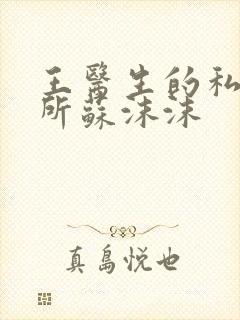 王醫生的私
所蘇沫沫
真島悦也